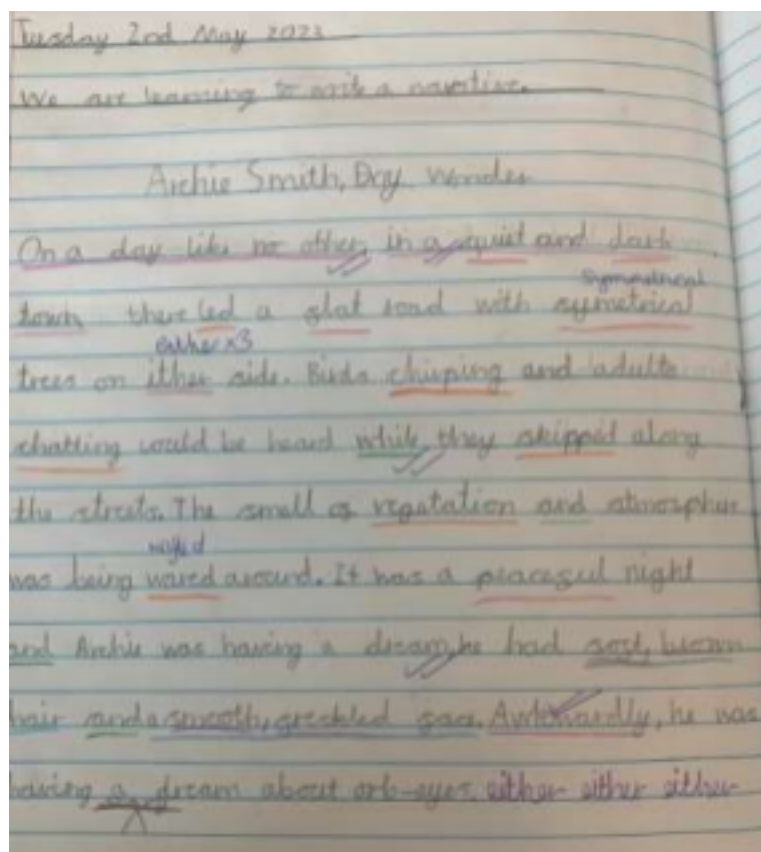 Tuesday 2nd May 2023
We are learning to write a narritive.
Archie Smith, Day Wonder
On a day like no other, in a quiet and dark
symmetrical
town there led a flat road with symetrical
either x3
trees on ither side. Birds chirping and adults
chatting could be heard while they skipped along
the streets. The smell of vegatation and atmosphere
wafed
was being waved around. It was a peaceful night
and Archie was having a dream, he had soft, brown
hair and a smooth, freckled face. Awkwardly, he was
having a dream about orb-eyes. either either either